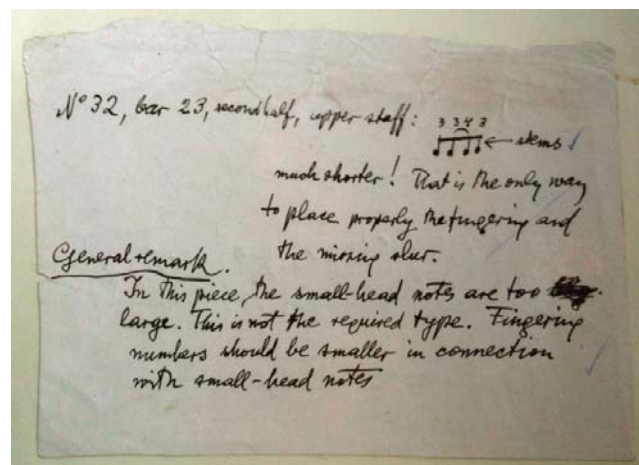 Nº 32, bar 23, second half, upper staff:
3 3 4 3
← stems
much shorter! That is the only way
to place properly the fingering and
the missing slur.
General remark.
In this piece the small-head notes are too
large. This is not the required type. Fingering
numbers should be smaller in connection
with small-head notes